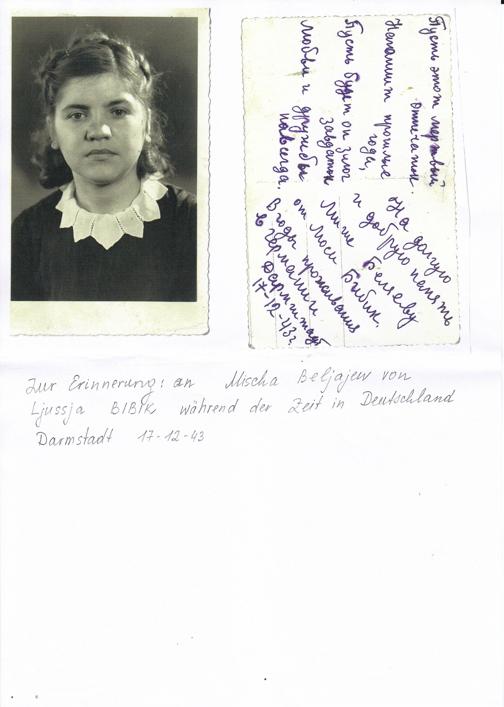 Пусть этот мертвый
отпечаток.
Напомнит прошлые
года,
Пусть будет он залог
завдаток
любви и дружбы
навсегда.
На долгую
и добрую память
Мише Беляеву
от Люси Бибик.
В годы проживания
в Германии
Дармштадт
17-12-43г
Zur Erinnerung: an Mischa Beljajew von
Ljussja BIBIK während der Zeit in Deutschland
Darmstadt 17-12-43